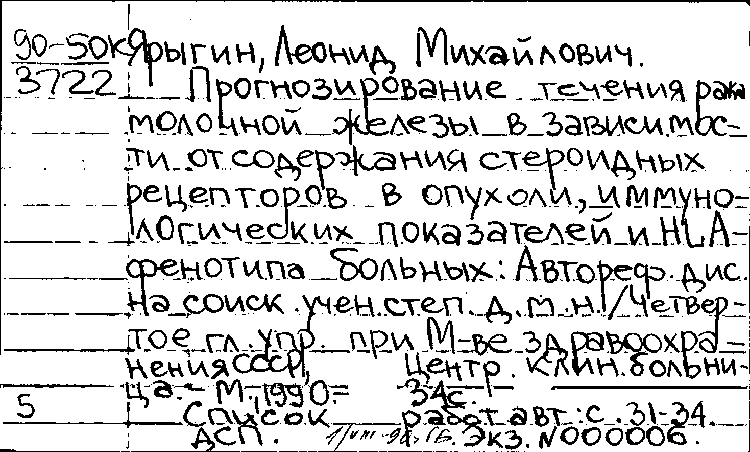 90-50к Ярыгин, Леонид Михайлович.
3722 Прогнозирование течения рака
молочной железы в зависимос-
ти от содержания стероидных
рецепторов в опухоли, иммуно-
логических показателей и HLA-
фенотипа больных: Автореф. дис.
на соиск. учен. степ. д.м.н. / Четвер-
тое гл. упр. при М-ве здравоохра-
нения СССР, Центр. клин. больни-
ца. - М., 1990. - 34с.
5 Список работ авт.: с. 31-34.
ДСП. Экз. N000006.